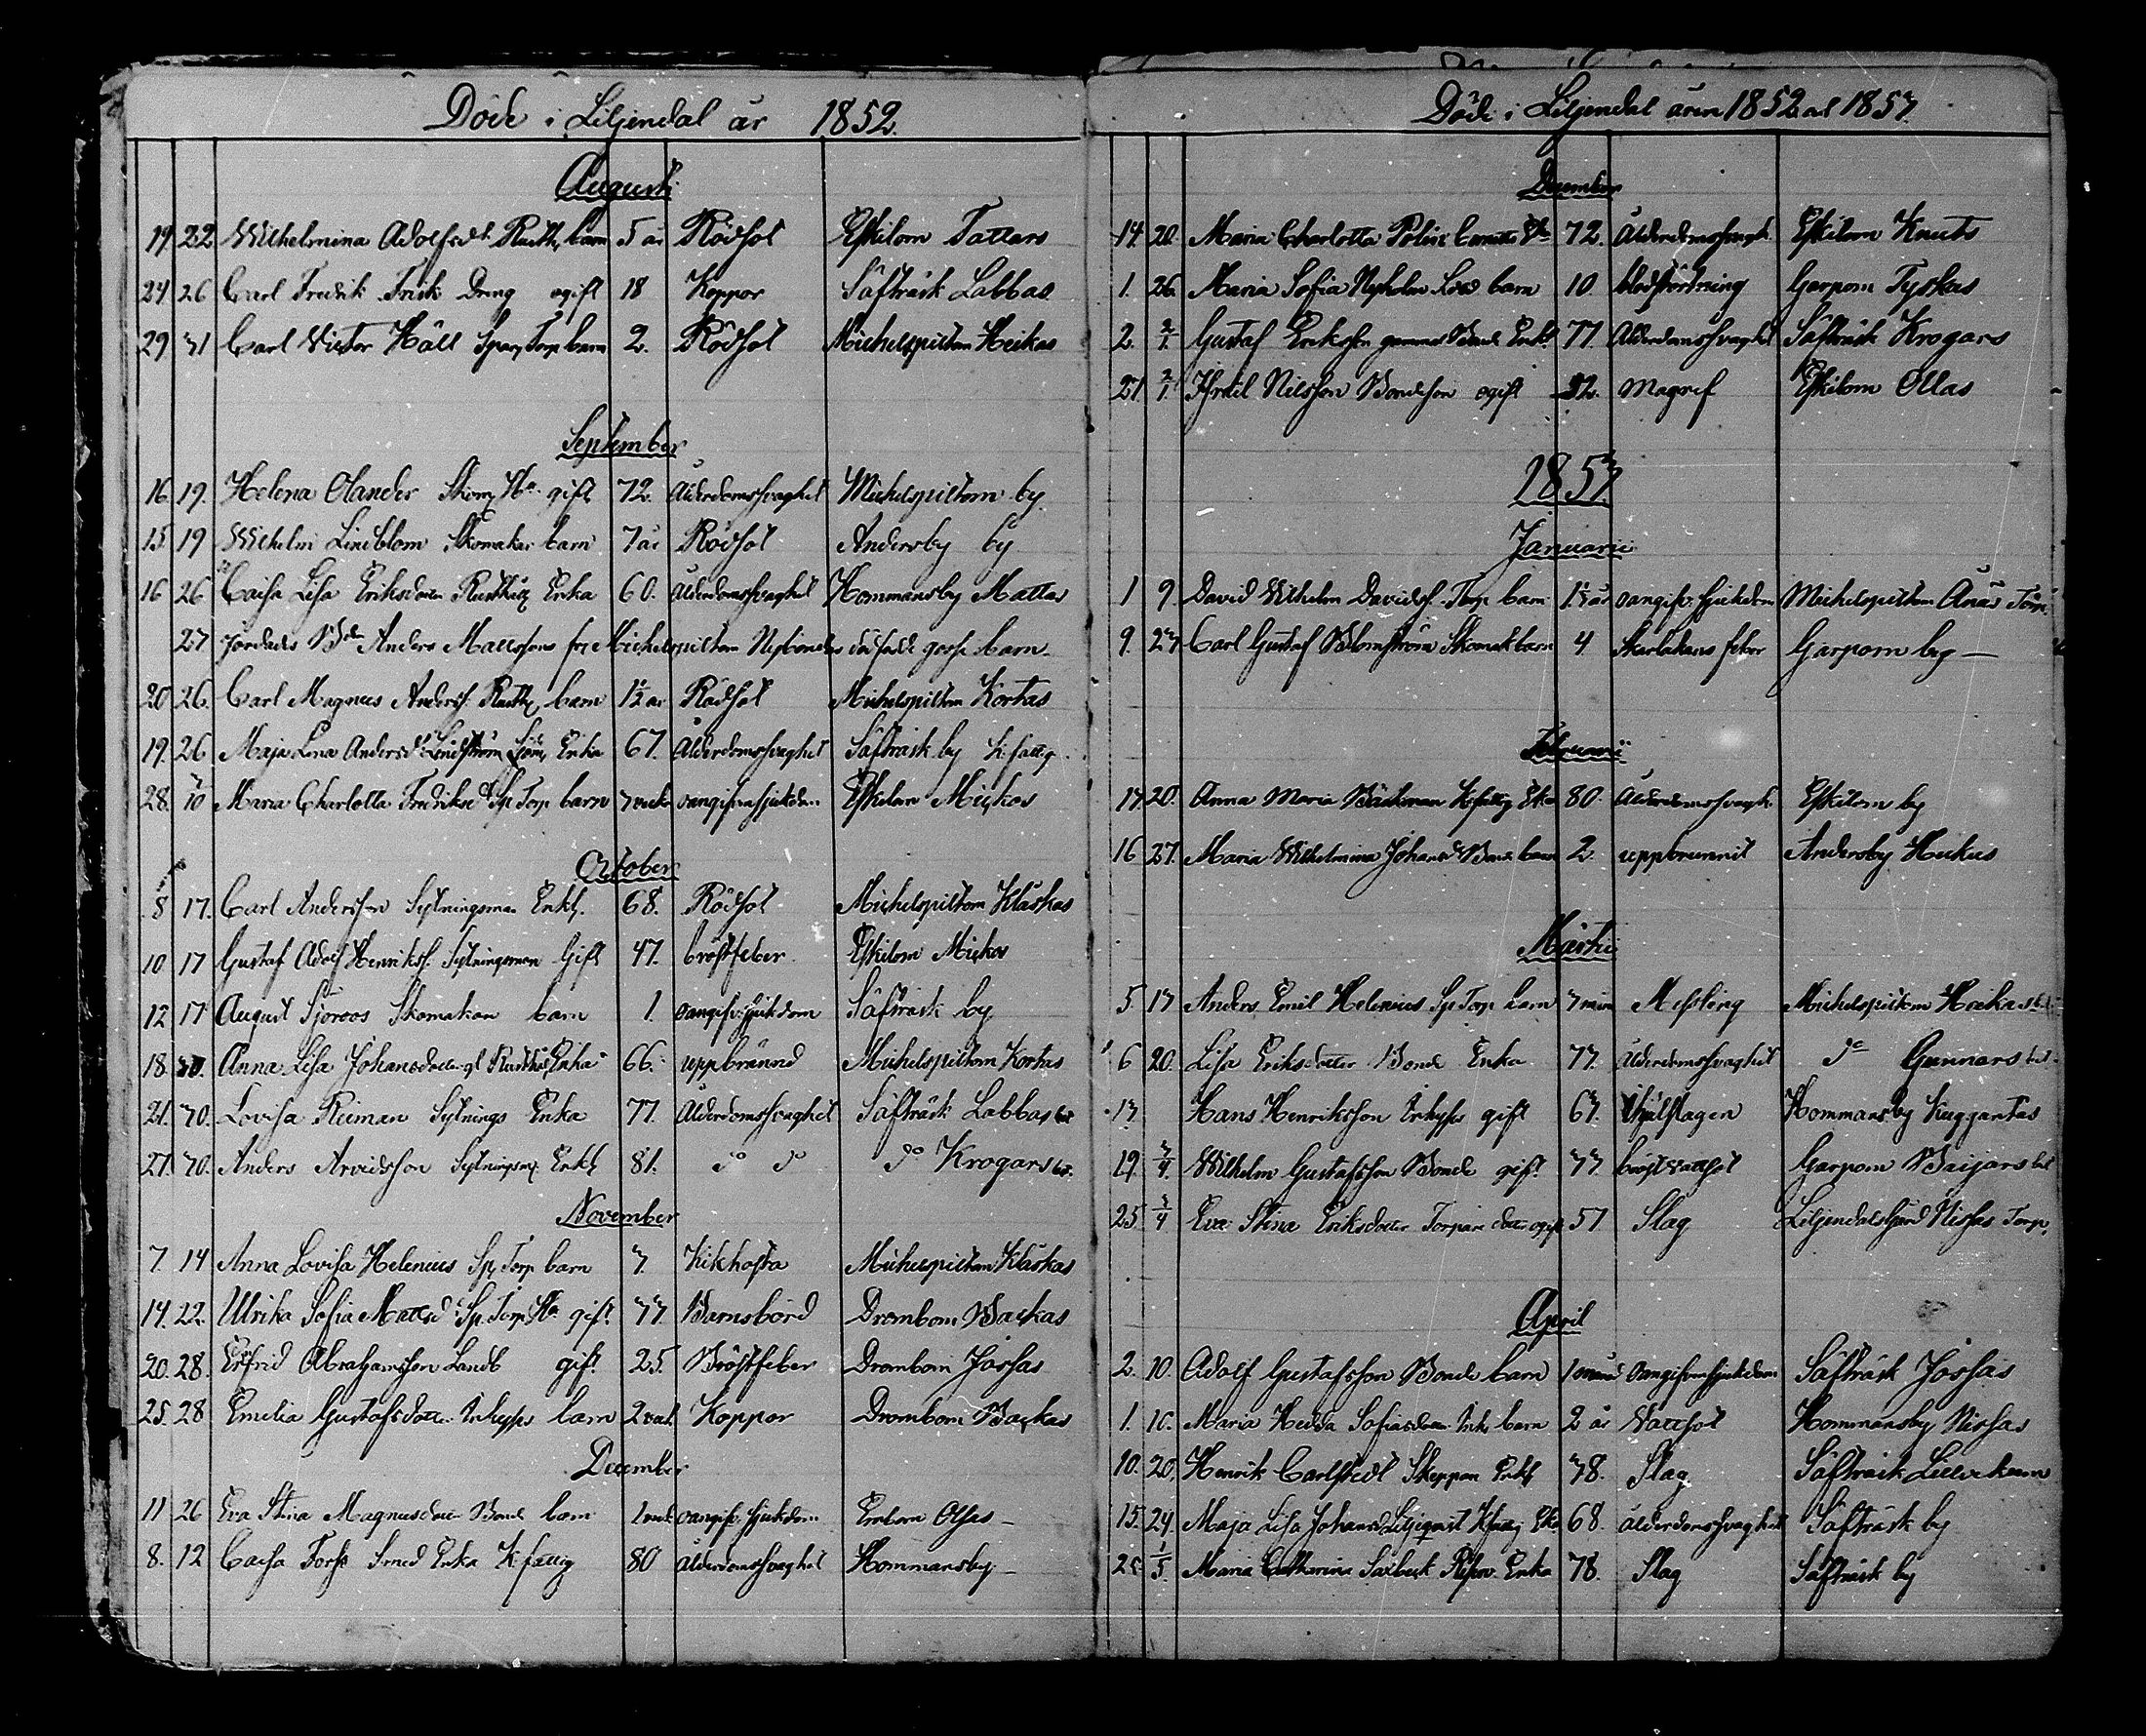 Döde i Liljendal år 1852.
Augusti
19. 22 Wilhelmina Adolfsdt Rusth. barn 5 år Rödsot Eskilom Tattars
24 26 Carl Fredrik Frisk Dreng ogift 18 Koppor Säfträsk Labbas
29 31 Carl Victor Häll Torp barn 2. Rödsot Michelspiltom Heikas
September
16. 19. Helena Olander Skom. Ha gift 72. Ålderdomssvaghet Michelspiltom by
15 19 Wilhelm Lindblom Skomakar barn 3 år Rödsot Andersby by
16 26 Caisa Lisa Eriksdotter Rusthåll Enka 60. Ålderdomssvaghet Hommansby Mattas
27 Jordades Bdn Anders Mattssons fr. Michelspiltom Nybondas dödfödde gosse barn
20 26. Carl Magnus Andersf. Rusth. barn 1½ år Rödsot Michelspiltom Kortas
19. 26 Maja Lena Andersdr Lindström Enka 67. Ålderdomssvaghet Säfträsk by K. fattig
28. 3/10 Maria Charlotta Fredriksd Sp Torp barn 3 veckor oangifven sjukdom Eskilom Mickos
October
8 17. Carl Andersson Sytningsman Enkl. 68. Rödsot Michelspiltom Klåskas
10 17 Gustaf Adolf Henriksf. Sytningsman Gift 47. bröstfeber Eskilom Mickos
12 17 August Sjöroos Skomakare barn 1. oangifv. sjukdom Säfträsk by
18. 30. Anna Lisa Johansdotter gl Rusthå. Enka 66. uppbränd Michelspiltom Kortas
21. 30. Lovisa Reiman Sytnings Enka 77. Ålderdomssvaghet Säfträsk Labbas bol
27. 30. Anders Arvidsson Sytningsm. Enkl 81. do do do Krogars bol.
November
7. 14 Anna Lovisa Helenius Sp. Torp barn 3. Kikhosta Michelspiltom Klåskas
14. 22. Ulrika Sofia Mattsd Sp. Torp. Ha gift. 33 Barnsbörd Drombom Backas
20. 28. Erfrid Abrahamsson Landb gift 25. Bröstfeber Drombom Jossas
25. 28 Emelia Gustafsdotter Inhyses barn 2 veck. Koppor Drombom Backas
December
11 26 Eva Stina Magnusdotter Bonde barn oangifv. sjukdom Embom Olsas
8. 12 Caisa Forss Smed Enka K fattig 80 Ålderdomssvaghet Hommansby
Döde i Liljendal åren 1852 och 1853
December
14 20. Maria Charlotta 72. Ålderdomssvagh. Eskilom Knuts
1. 26. Maria Sofia Nyholm barn 10. blodförtring Garpom Tyskas
2. 2/1. Gustaf Eriksson gammal Bonde Enkl 77. Ålderdomssvaghet Säfträsk Krogars
27. 2/1. Israel Nilsson Bondeson ogift 32. Magref Eskilom Ollas
1853
Januarii
1 9. David Wilhelm Davidsf. Torp. barn oangifv. sjukdom Michelspiltom Ånäs Torp
9. 23 Carl Gustaf Blomström Skomak barn 4. Skarlakans feber Garpom by
Februarii
13 20. Anna Maria Bäckman K.fattig Enka 80. Ålderdomssvagh. Eskilom by
16 27. Maria Wilhelmina Johansd Bonde barn 2. uppbrunnit Andersby Heikus
Martii
5. 13 Anders Emil Helenius Sp Torp barn 3 mån Messling Michelspiltom Heikas bol
6 20. Lisa Eriksdotter Bonde Enka 73. Ålderdomssvaghet do Gunnars bol
13. Hans Henriksson Inhyses gift 63. Ihjälslagen Hommansby Kuggantas
19. 3/4. Wilhelm Gustafsson Bonde gift 33 bröstvattsot Garpom Baijars bol
25 3/4 Eva Stina Eriksdotter Torpare dotter ogift 51 Slag Liljendals Gård Nissas Torp.
April
2. 10. Adolf Gustafsson Bonde barn 1 månad oangifven sjukdom Säfträsk Jossas
1. 10. Maria Hedda Sofiasdotter Inh. barn 2 år Vattsot Hommansby Nissas
10. 20. Henrik Carlstedt Skeppare Enkl 38. Slag Säfträsk
15. 24. Maja Lisa Johansd Liljeqvist K.fattig Enka 68. ålderdomssvaghet Säfträsk by
25 1/5. Maria Catharina Saxbeck Enka 78. Slag Säfträsk by